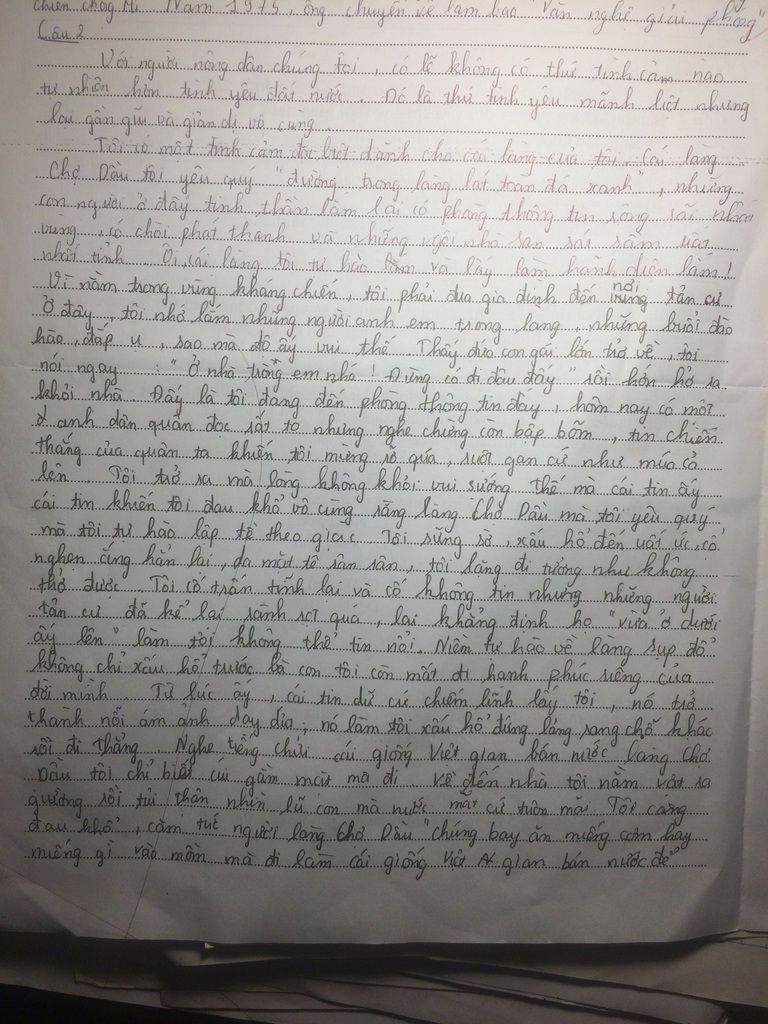 chiến chống Mĩ. Năm 1975, ông chuyển về làm báo "Văn nghệ giải phóng"
Câu 2
Với người nông dân chúng tôi, có lẽ không có thứ tình cảm nào
tự nhiên hơn tình yêu đất nước. Đó là thứ tình yêu mãnh liệt nhưng
lại gần gũi và giản dị vô cùng
Tôi có một tình cảm đặc biệt dành cho cái làng của tôi. Cái làng
Chợ Dầu tôi yêu quý "đường trong làng lát toàn đá xanh", những
con người ở đây tinh thần làm lại có phòng thông tin rộng rãi nhất
vùng, có chòi phát thanh và những ngôi nhà san sát sầm uất
nhất tỉnh. Ôi, cái làng tôi tự hào lắm và lấy làm hãnh diện lắm!
Vì nằm trong vùng kháng chiến, tôi phải đưa gia đình đến nơi tản cư
Ở đây, tôi nhớ lắm những người anh em trong làng, những buổi đào
hào, đắp ụ, sao mà độ ấy vui thế. Thấy đứa con gái lớn trở về, tôi
nói ngay : "Ở nhà trông em nhá! Đừng có đi đâu đấy" rồi hớn hở ra
khỏi nhà. Đấy là tôi đang đến phòng thông tin đấy, hôm nay có một
anh dân quân đọc rất to nhưng nghe chừng còn bập bõm, tin chiến
thắng của quân ta khiến tôi mừng rỡ quá, ruột gan cứ như múa cả
lên. Tôi trở ra mà lòng không khỏi vui sướng. Thế mà cái tin ấy
cái tin khiến tôi đau khổ vô cùng rằng làng Chợ Dầu mà tôi yêu quý
mà tôi tự hào lập tề theo giặc. Tôi sững sờ, xấu hổ đến uất ức, cổ
nghẹn ắng hẳn lại, da mặt tê rân rân, tôi lặng đi tưởng như không
thở được. Tôi cố trấn tĩnh lại và cố không tin nhưng những người
tản cư đã kể lại rành rọt quá, lại khẳng định họ "vừa ở dưới
ấy lên" làm tôi không thể tin nổi. Niềm tự hào về làng sụp đổ
không chỉ xấu hổ trước bà con tôi còn mất đi hạnh phúc riêng của
đời mình. Từ lúc ấy, cái tin dữ cứ chiếm lĩnh lấy tôi, nó trở
thành nỗi ám ảnh day dứa, nó làm tôi xấu hổ đứng lảng sang chỗ khác
rồi đi thẳng. Nghe tiếng chửi cái giống Việt gian bán nước làng Chợ
Dầu tôi chỉ biết cúi gằm mặt mà đi. Về đến nhà tôi nằm vật ra
giường rồi tủi thân nhìn lũ con mà nước mắt cứ tuôn mãi. Tôi càng
đau khổ, căm tức người làng Chợ Dầu "chúng bay ăn miếng cơm hay
miếng gì vào mồm mà đi làm cái giống Việt gian bán nước để